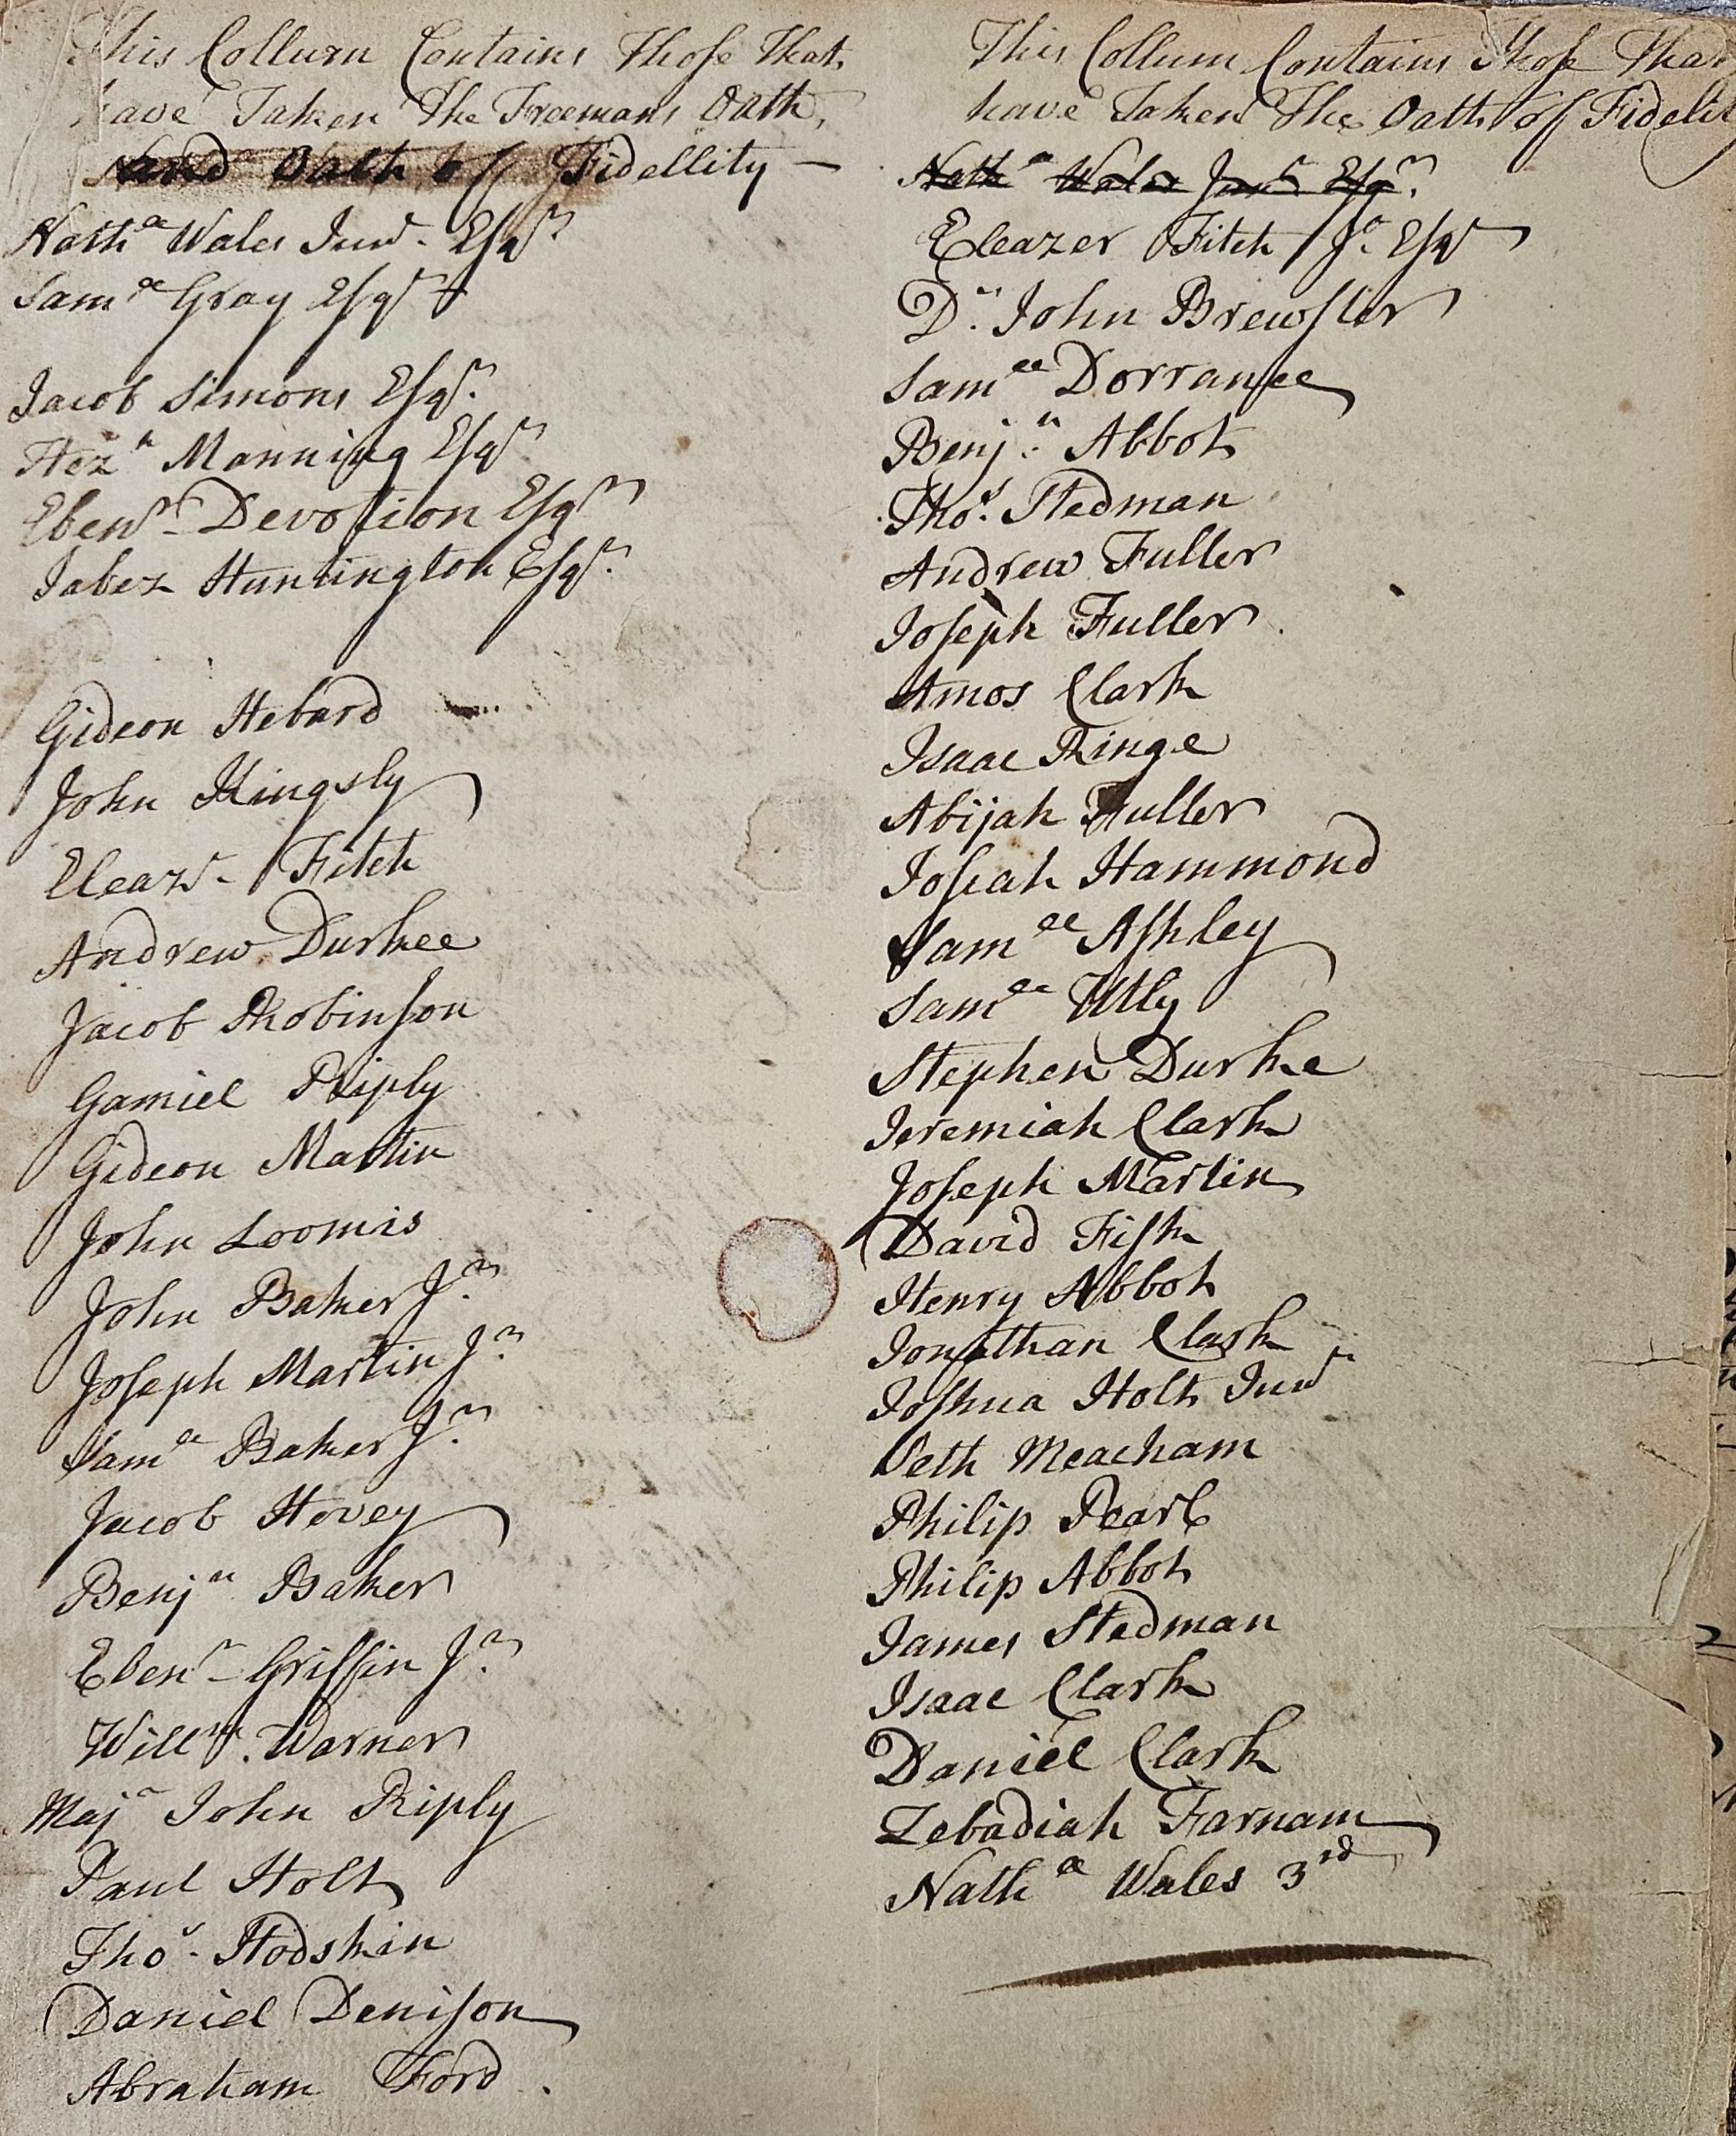 This Collum Contains Those That
have Taken The Freemans Oath,
and Oath of Fidellity —
Nathll Wales Junr. Esqr
Samll Gray Esqr
Jacob Simons Esqr.
Hezh Manning Esqr
Ebenr Devotion Esqr
Jabez Huntington Esqr.
Gideon Hebard
John Kingsly
Eleazr Fitch
Andrew Durkee
Jacob Robinson
Gamiel Riply
Gideon Martin
John Loomis
John Baker Jr.
Joseph Martin Jr.
Samll Baker Jr.
Jacob Hovey
Benjn Baker
Ebenr Griffin Jr.
Willm. Warner
Majr John Riply
Paul Holt
Thos. Hodskin
Daniel Denison
Abraham Ford.
This Collum Contains Those That
have Taken The Oath of Fidelit
Nathll Wales Junr Esqr.
Eleazer Fitch Jr. Esqr
Dr. John Brewster
Samll Dorrance
Benjn. Abbot
Thos. Stedman
Andrew Fuller
Joseph Fuller
Amos Clark
Isaac Ringe
Abijah Fuller
Josiah Hammond
Samll Ashley
Samll Utly
Stephen Durke
Jeremiah Clark
Joseph Martin
David Fish
Henry Abbot
Jonathan Clark
Joshua Holt Junr
Seth Meacham
Philip Pearl
Philip Abbot
James Stedman
Isaac Clark
Daniel Clark
Zebadiah Farnam
Nathll Wales 3rd